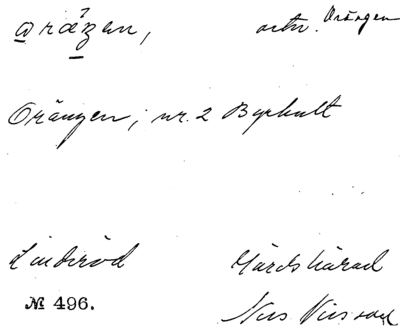 oræ̂zen, ortn. Orängen
Orängen; nr. 2 Byhult
Linderöd Gärds härad
№ 496. Nils Nilsson